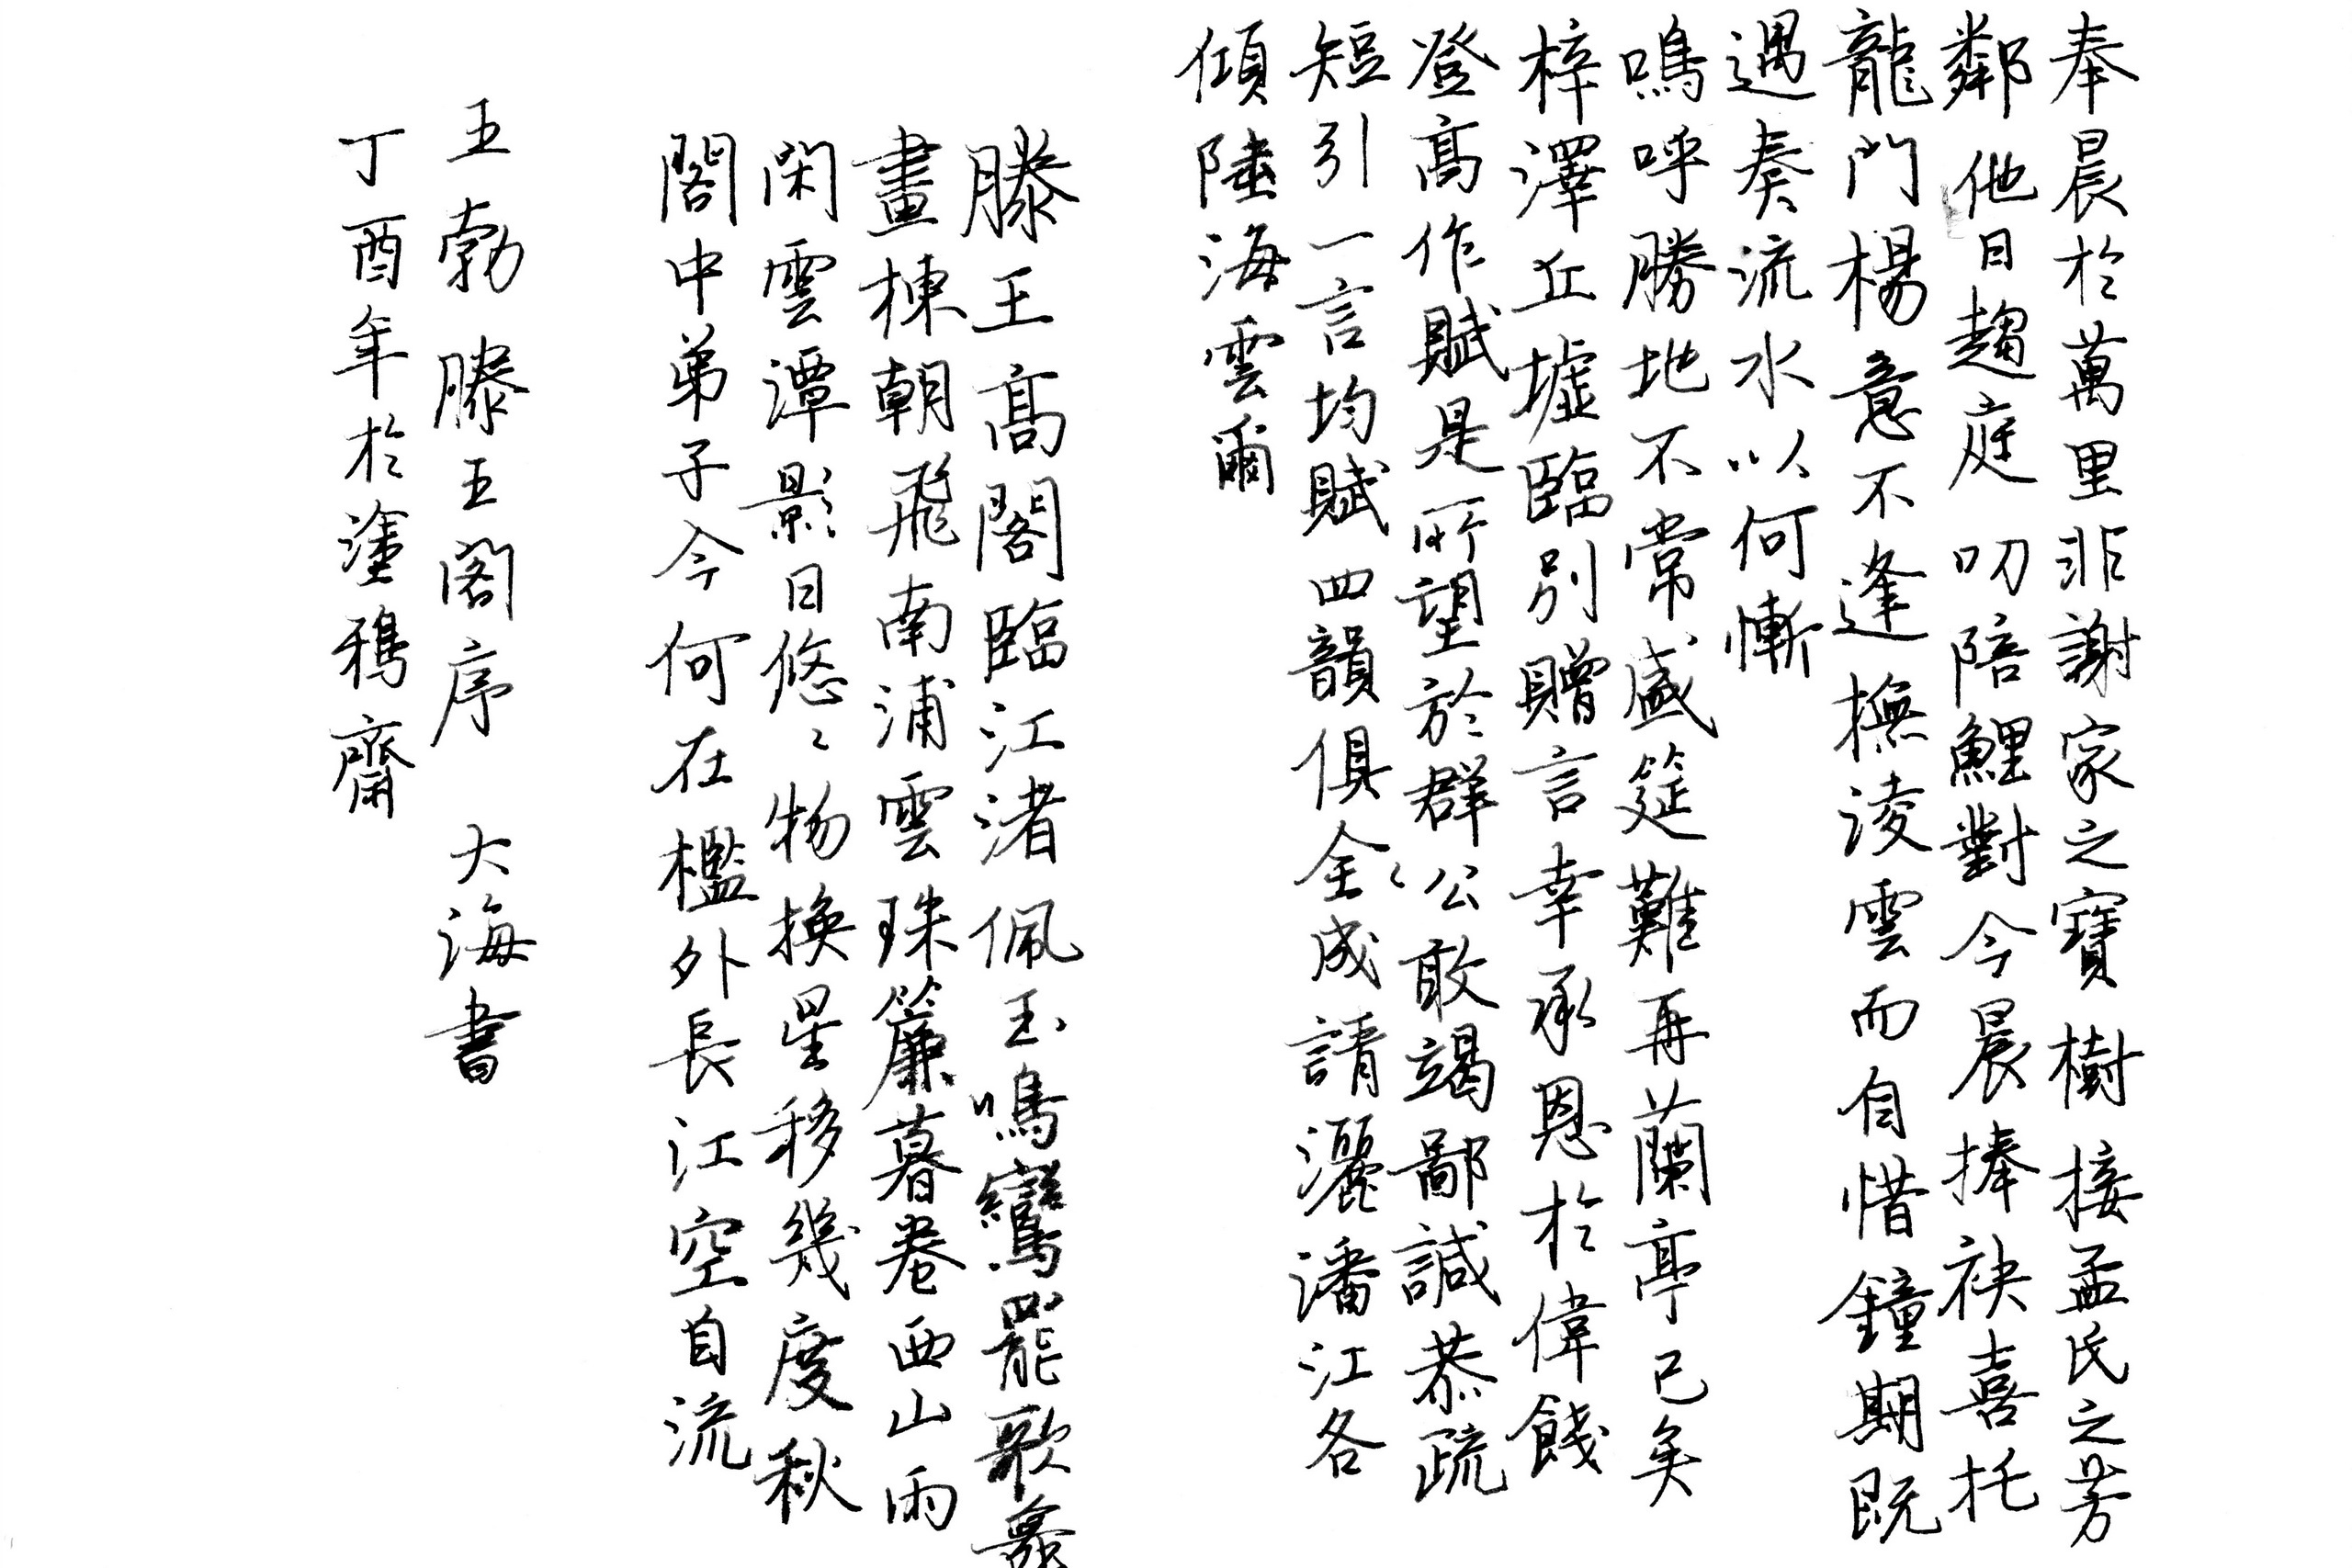 奉晨於萬里非謝家之寶樹接孟氏之芳
鄰他日趨庭叨陪鯉對今晨捧袂喜托
龍門楊意不逢撫淩雲而自惜鐘期既
遇奏流水以何慚
嗚呼勝地不常盛筵難再蘭亭已矣
梓澤丘墟臨別贈言幸承恩於偉餞
登高作賦是所望於群公敢竭鄙誠恭疏
短引一言均賦四韻俱全成請灑潘江各
傾陸海雲爾
滕王高閣臨江渚佩玉鳴鸞罷歌舞
畫棟朝飛南浦雲珠簾暮卷西山雨
閑雲潭影日悠〻物換星移幾度秋
閣中弟子今何在檻外長江空自流
王勃滕王閣序 大海書
丁酉年於塗鴉齋